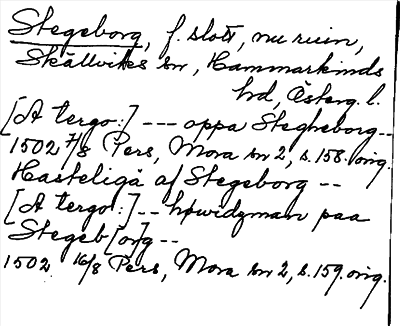 Stegeborg, f. slott, nu ruin,
Skällviks sn, Hammarkinds
hd, Österg. l.
[A tergo:] --- oppa Stegheborg--
1502 7/8 Pers, Mora sn 2, s. 158. orig.
Hasteligä af Stegeborg --
[A tergo:]-- høwidzman paa
Stegeb[or]g --
1502 16/8 Pers, Mora sn 2, s. 159. orig.